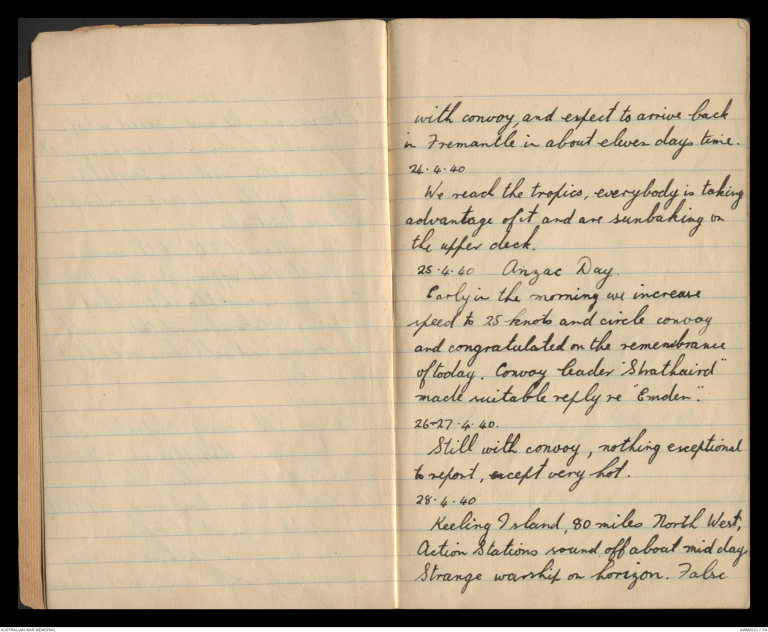 with convoy, and expect to arrive back
in Fremantle in about eleven days time.
24.4.40
We reach the tropics, everybody is taking
advantage of it and are sunbaking on
the upper deck.
25.4.40 Anzac Day.
Early in the morning we increase
speed to 25 knots and circle convoy
and congratulated on the remembrance
of today. Convoy leader "Strathaird"
made suitable reply re "Emden".
26-27.4.40.
Still with convoy, nothing exceptional
to report, except very hot.
28.4.40
Keeling Island, 80 miles North West,
Action Stations sound off about mid day
Strange warship on horizon. False
AUSTRALIAN WAR MEMORIAL